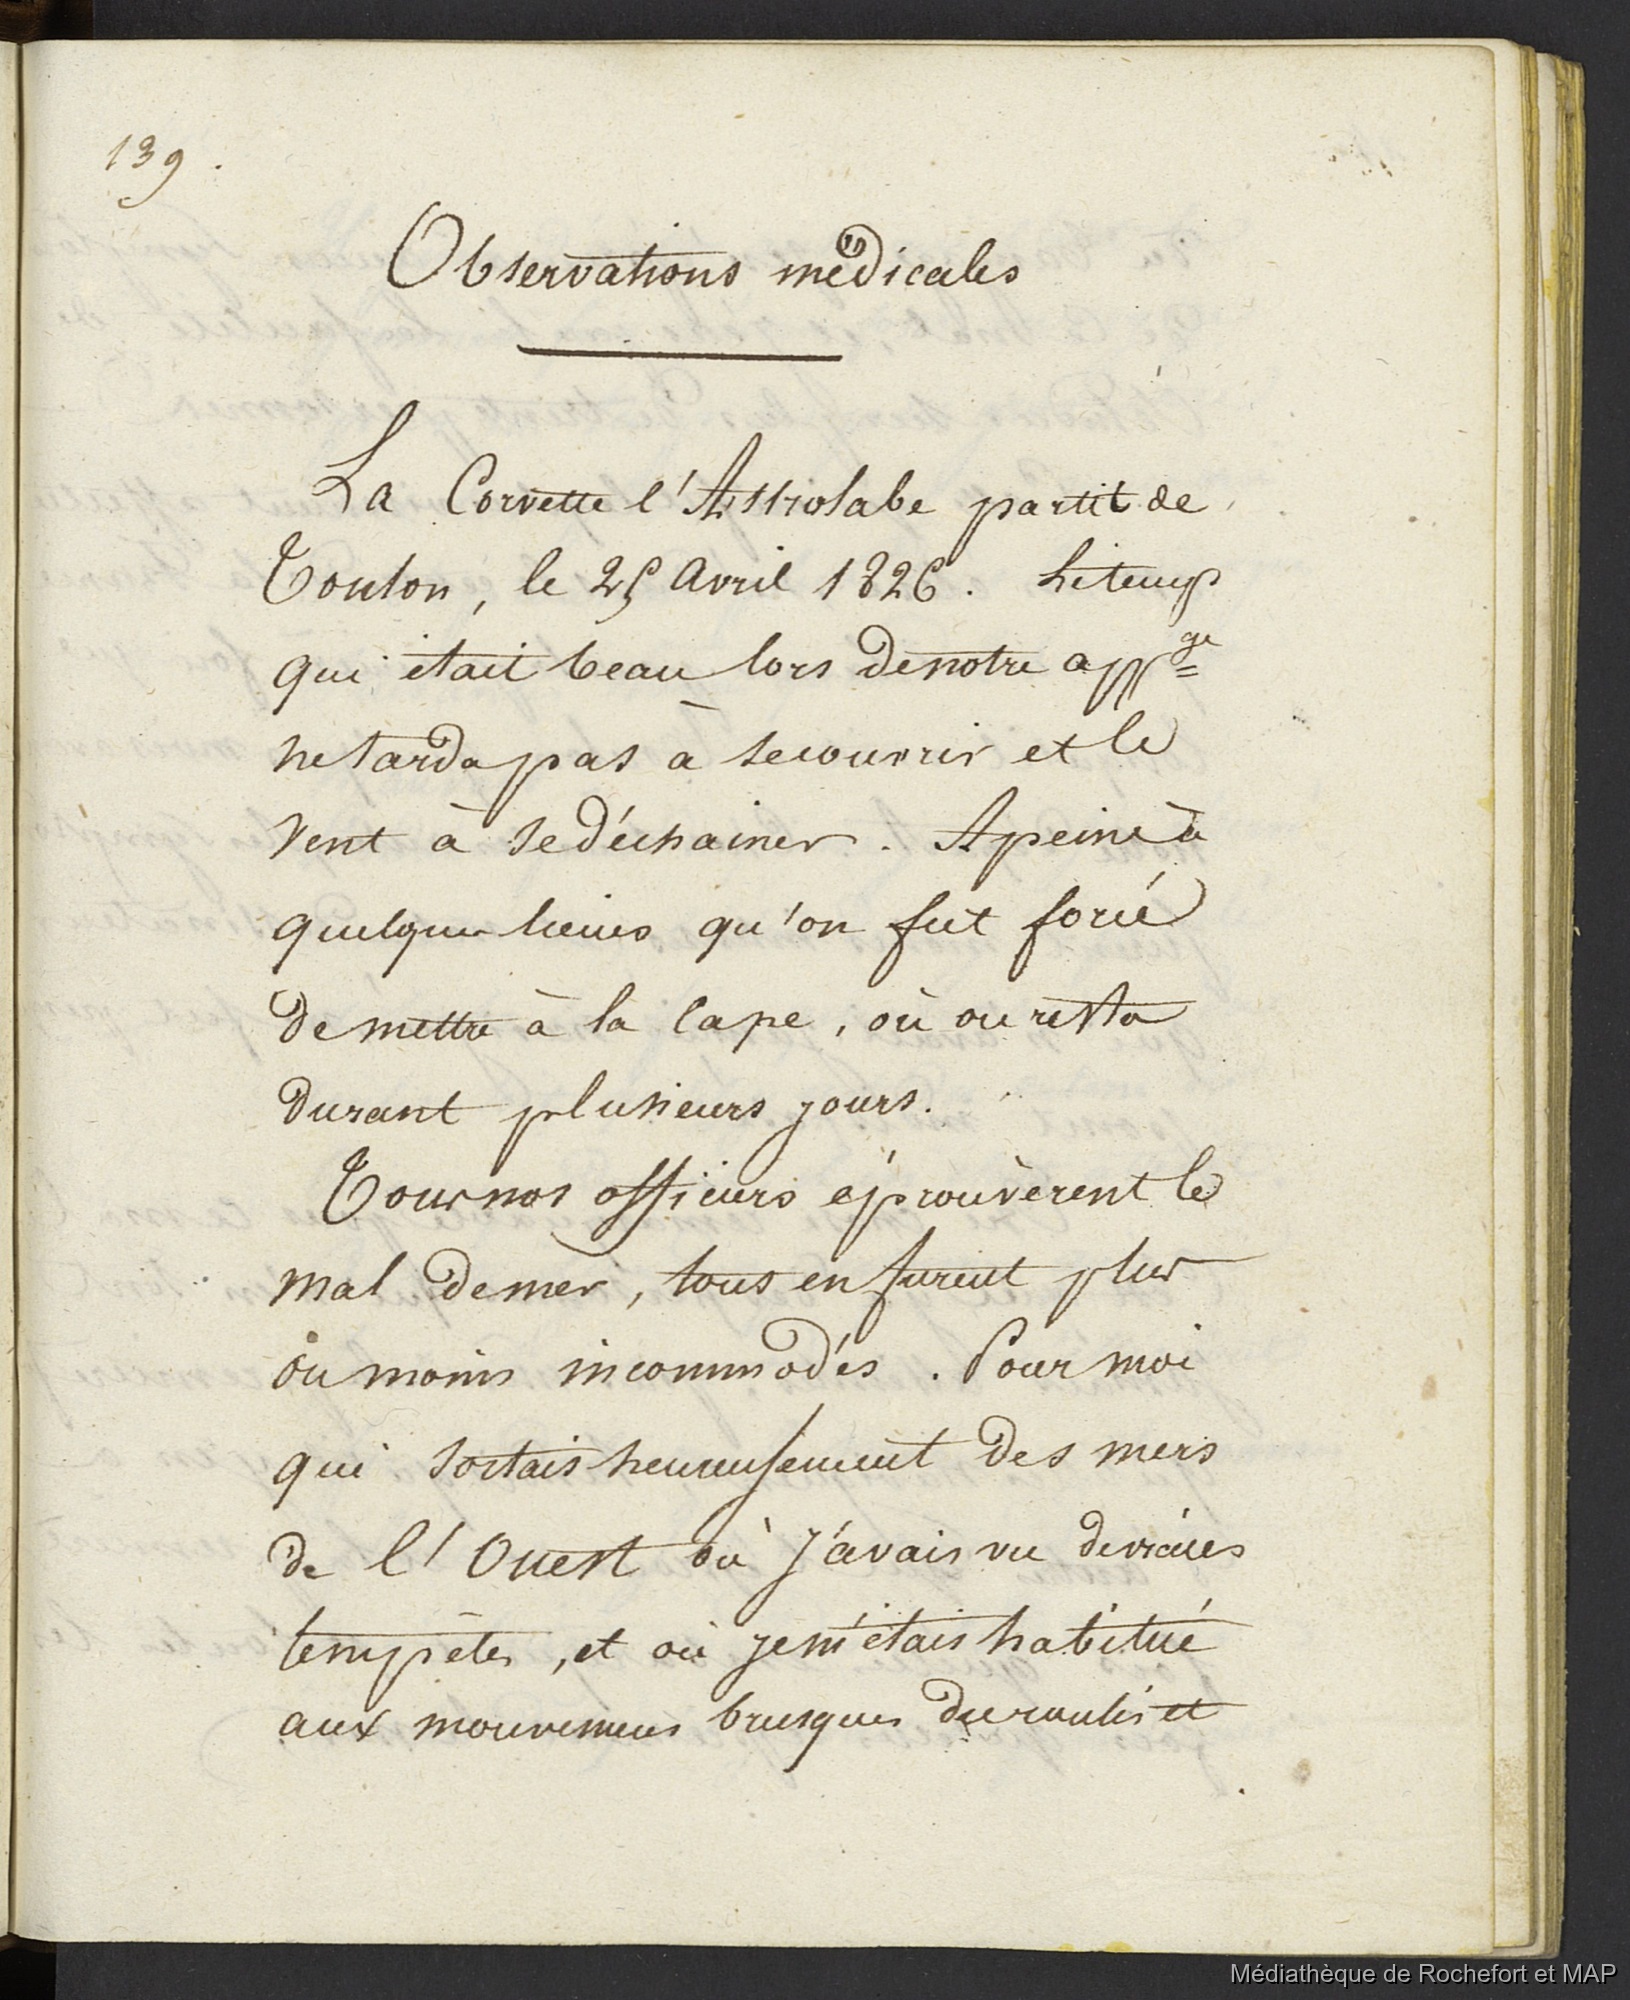 139.
Observations médicales
La Corvette l'Astrolabe partit de
Toulon, le 25 Avril 1826. Le temps
qui était beau lors de notre app.ge
ne tarda pas à se couvrir et le
vent à se déchainer. A peine à
quelques lieues qu'on fut forcé
de mettre à la Cape, où on resta
durant plusieurs jours.
Tous nos officiers éprouvèrent le
mal de mer, tous en furent plus
ou moins incommodés. Pour moi
qui sortais heureusement des mers
de l'Ouest où j'avais vu de vraies
tempêtes, et où je m'étais habitué
aux mouvemens brusques du roulis et
Médiathèque de Rochefort et MAP